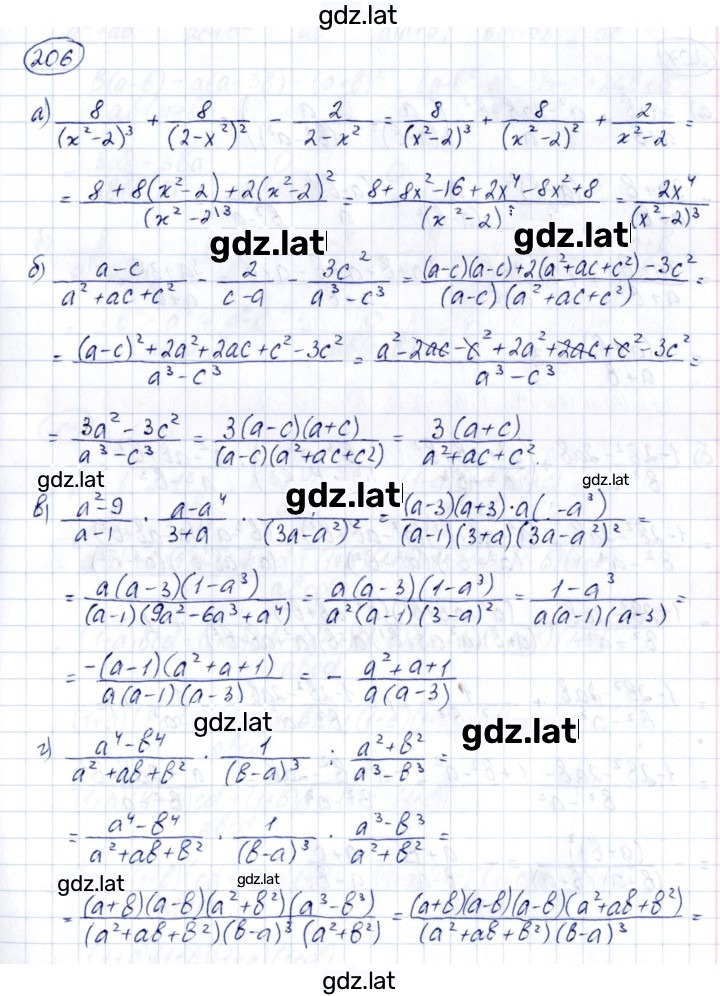 gdz.lat
206
а) 8/(x²-2)³ + 8/(2-x²)² - 2/(2-x²) = 8/(x²-2)³ + 8/(x²-2)² + 2/(x²-2) =
= (8+8(x²-2)+2(x²-2)²)/(x²-2)³ = (8+8x²-16+2x⁴-8x²+8)/(x²-2)³ = 2x⁴/(x²-2)³
gdz.lat gdz.lat
б) (a-c)/(a²+ac+c²) - 2/(c-a) - 3c²/(a³-c³) = ((a-c)(a-c)+2(a²+ac+c²)-3c²)/((a-c)(a²+ac+c²)) =
= ((a-c)²+2a²+2ac+c²-3c²)/(a³-c³) = (a²-2ac-c²+2a²+2ac+c²-3c²)/(a³-c³) =
= (3a²-3c²)/(a³-c³) = 3(a-c)(a+c)/((a-c)(a²+ac+c2)) = 3(a+c)/(a²+ac+c²).
gdz.lat gdz.lat gdz.lat
в) (a²-9)/(a-1) · (a-a⁴)/(3+a) · /(3a-a²)² = (a-3)(a+3)·a( -a³)/((a-1)(3+a)(3a-a²)²) =
= a(a-3)(1-a³)/((a-1)(9a²-6a³+a⁴)) = a(a-3)(1-a³)/(a²(a-1)(3-a)²) = (1-a³)/(a(a-1)(a-3)) =
= -(a-1)(a²+a+1)/(a(a-1)(a-3)) = - (a²+a+1)/(a(a-3))
gdz.lat gdz.lat
г) (a⁴-в⁴)/(a²+aв+в²) · 1/(в-a)³ : (a²+в²)/(a³-в³) =
= (a⁴-в⁴)/(a²+aв+в²) · 1/(в-a)³ · (a³-в³)/(a²+в²) =
gdz.lat gdz.lat
= (a+в)(a-в)(a²+в²)(a³-в³)/((a²+aв+в²)(в-a)³(a²+в²)) = (a+в)(a-в)(a-в)(a²+aв+в²)/((a²+aв+в²)(в-a)³) =
gdz.lat